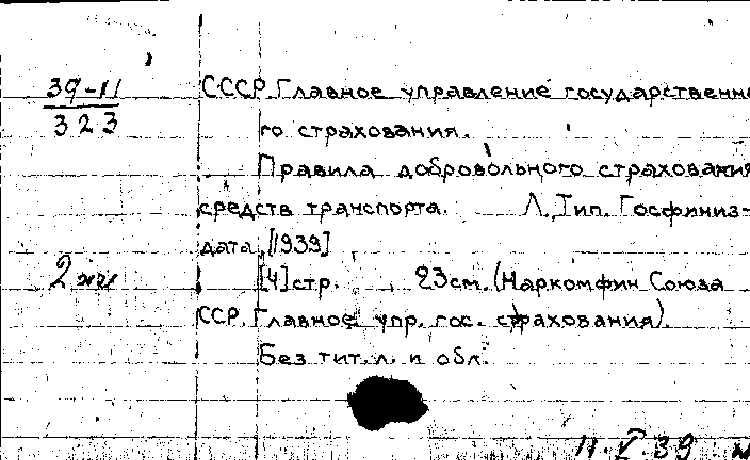 39-11
323
СССР. Главное управление государственно
го страхования.
Правила добровольного страхования
средств транспорта. Л, Тип. Госфиниз-
дата, [1939]
2
[4] стр. 23 см. (Наркомфин Союза
ССР. Главное упр. гос. страхования).
Без тит. л. и обл.
11.X.39